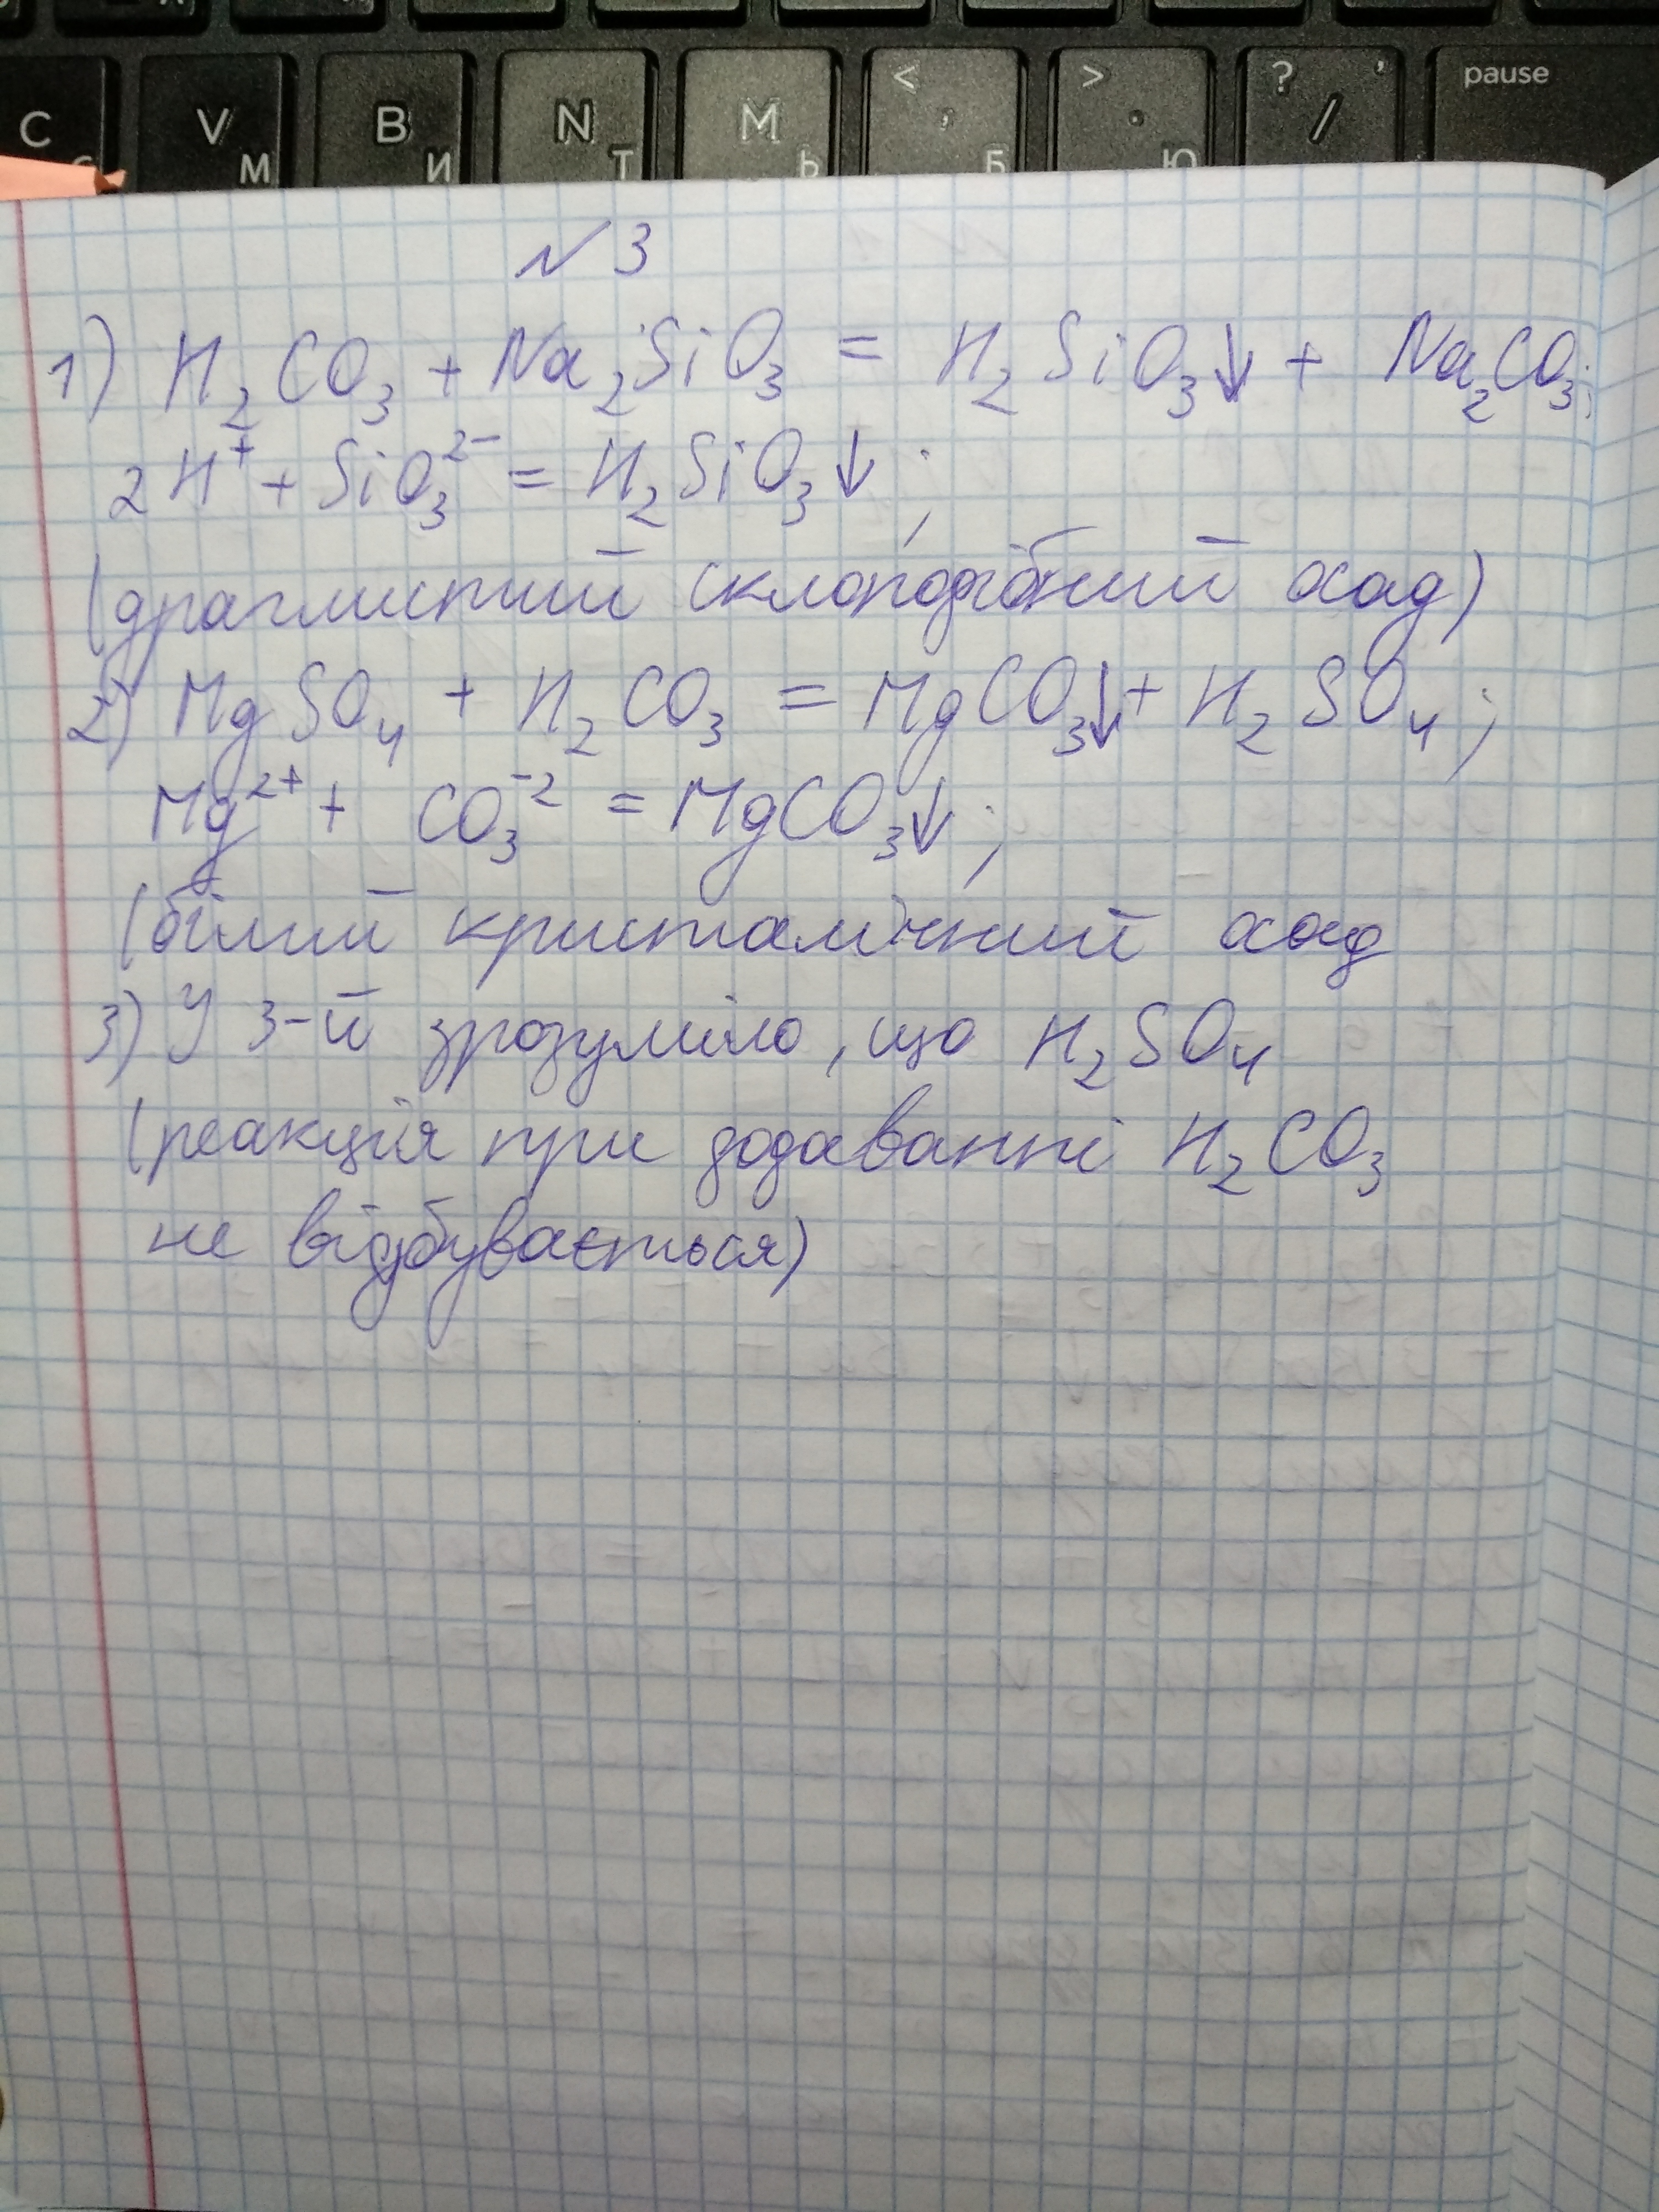 C V M B И N Т M Ь < , Б > . Ю ? ' / pause
N 3
1) H₂CO₃ + Na₂SiO₃ = H₂SiO₃↓ + Na₂CO₃;
2H⁺ + SiO₃²⁻ = H₂SiO₃↓;
(драглистий склоподібний осад)
2) MgSO₄ + H₂CO₃ = MgCO₃↓ + H₂SO₄;
Mg²⁺ + CO₃⁻² = MgCO₃↓;
(білий кристалічний осад
3) У 3-й зрозуміло, що H₂SO₄
(реакція при додаванні H₂CO₃
не відбувається)